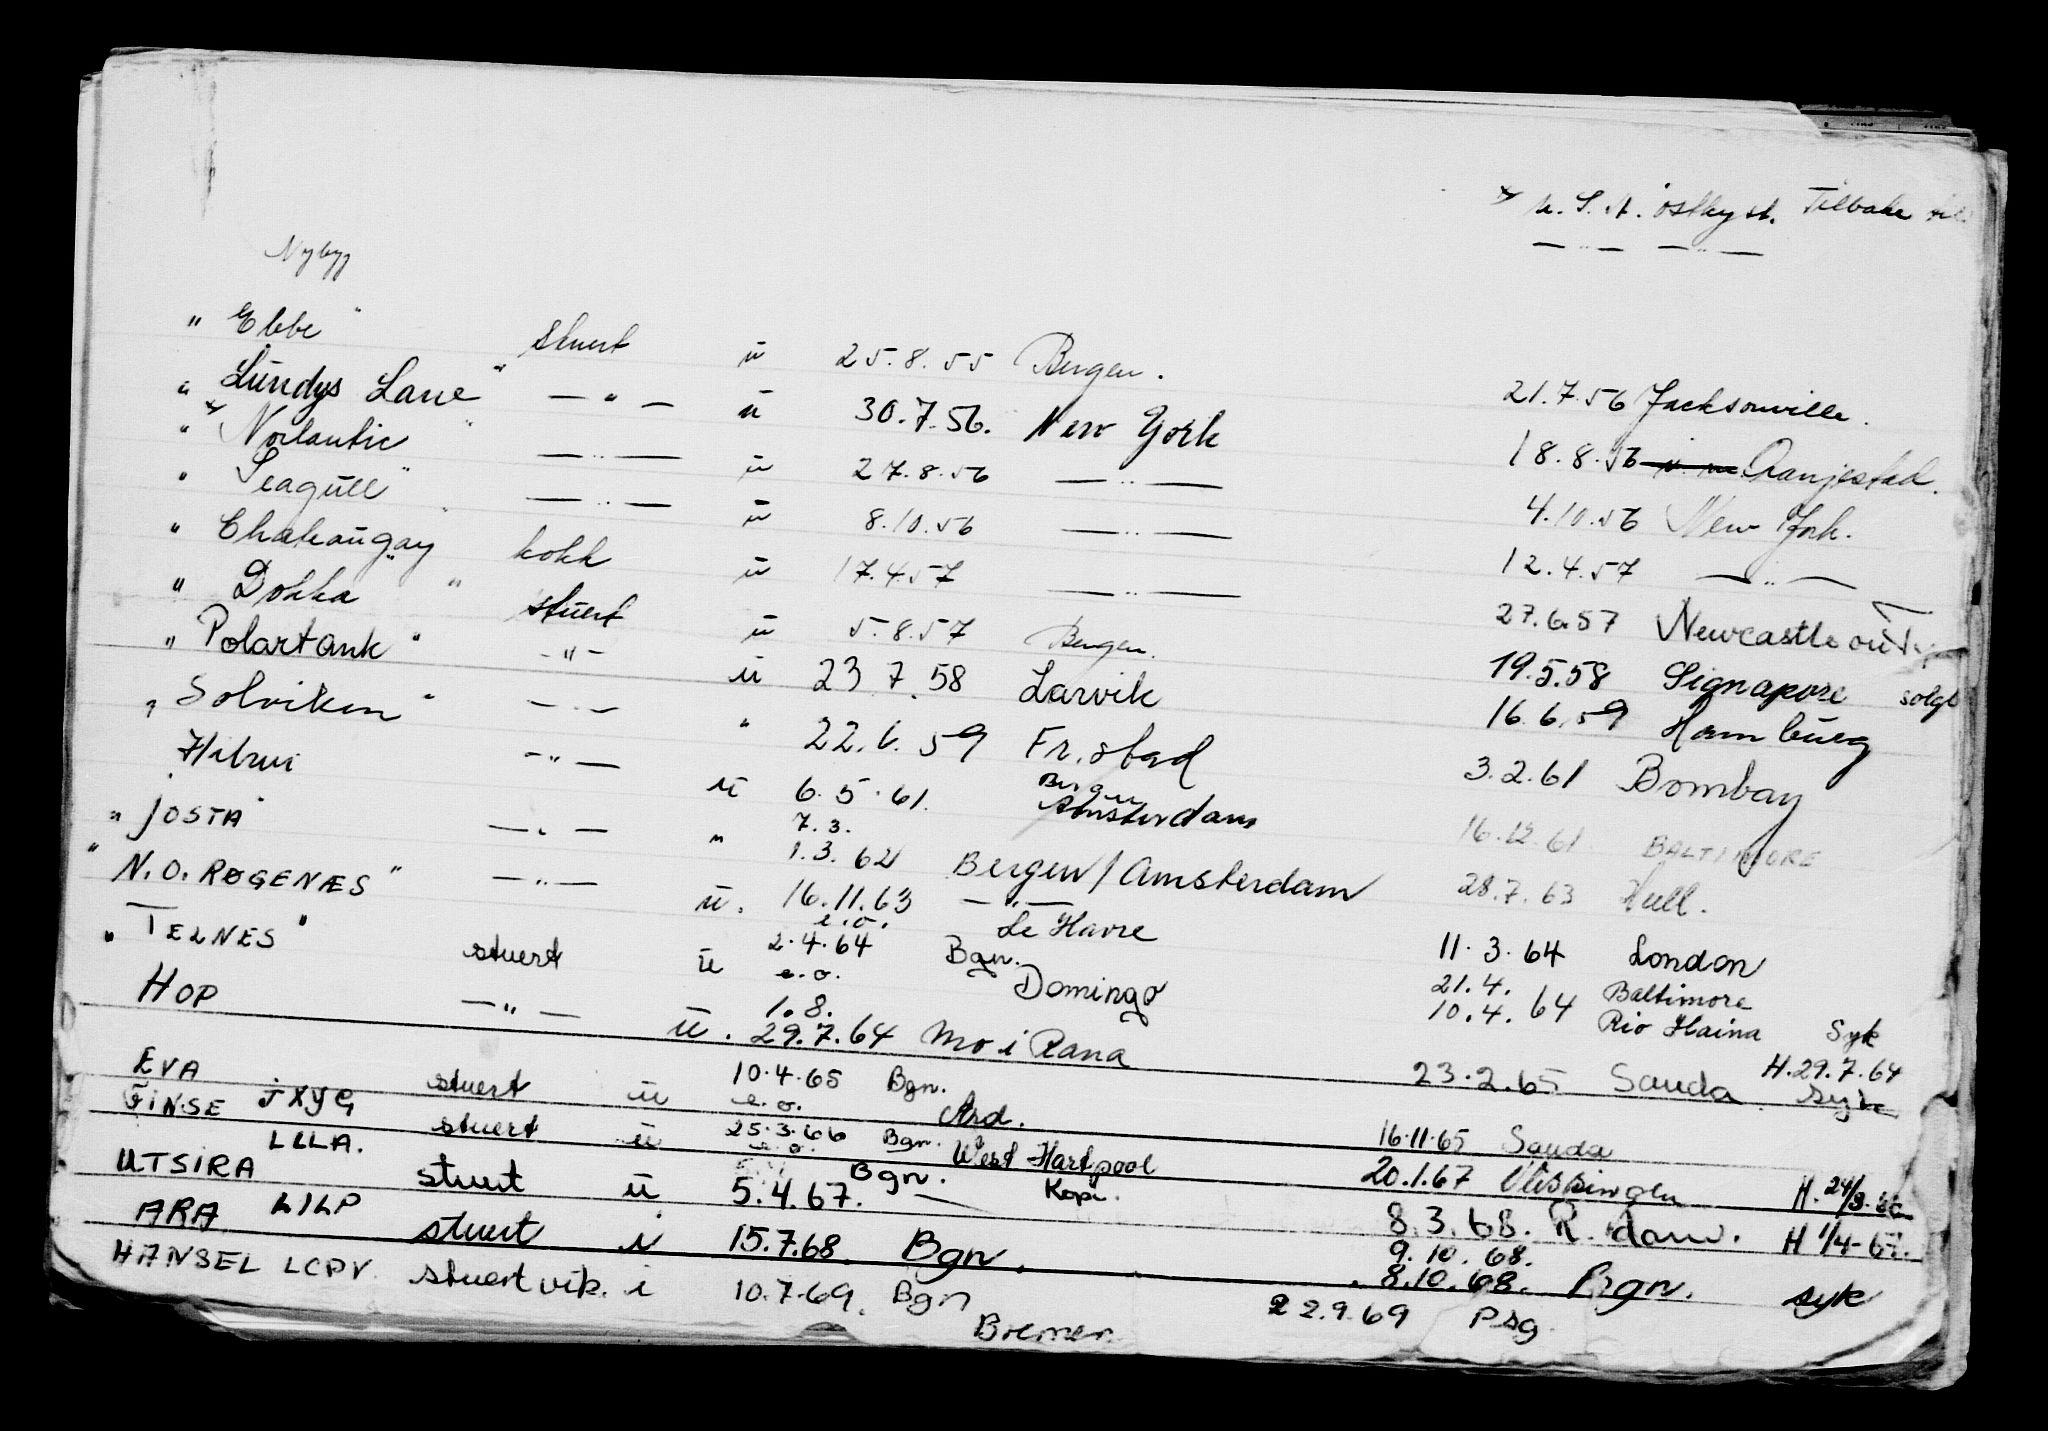 U.S.A. østkyst. Tilbake til
— " — — " —
Nybygg
" Ebbe " stuert ū 25.8.55 Bergen. 21.7.56 Jacksonville.
" Lundys Lane " — " — ū 30.7.56. New York 18.8.56 Oranjestad.
" Norlantic " — " — ū 27.8.56 — " — 4.10.56 New York.
" Seagull " — " — ū 8.10.56 — " — 12.4.57 — " —
" Chateaugay " kokk ū 17.4.57 — " — 27.6.57 Newcastle on T
" Dokka " stuert ū 5.8.57 Bergen. 19.5.58 Signapore solgt
" Polartank " — " — ū 23.7.58 Larvik 16.6.59 Hamburg
" Solviken " — " — " 22.6.59 Fr.stad 3.2.61 Bombay
Hilrui — " — ū 6.5.61. Bergen Amsterdam 16.12.61 BALTIMORE
" JOSTA " — " — " 7.3. 1.3.62 Bergen / Amsterdam 28.7.63 Hull.
" N.O. RØGENÆS " — " — ū. 16.11.63 — " — e.o. Le Havre 11.3.64 London
" TELNES " stuert ū 2.4.64 Bgn. e.o. Domingo 21.4. Baltimore 10.4.64 Rio Haina Syk
HOP — " — ū. 1.8. 29.7.64 Mo i Rana 23.2.65 Sauda H.29.7.64 syk
EVA JXYG stuert ū 10.4.65 Bgn. e.o. Ard. 16.11.65 Sauda
FINSE LLLA. stuert ū 25.3.66 Bgn. e.o. West Hartpool 20.1.67 Vlissingen H. 24/3.66
UTSIRA stuert ū 5.4.67. Bgn. — Kopi. 8.3.68. R.dam. H 1/4-67.
ARA LILP stuert i 15.7.68. Bgn. 9.10.68. 8.10.68. Bgn. syk
HANSEL LCPV stuert vik. i 10.7.69. Bgn Bremen 22.9.69 Psg